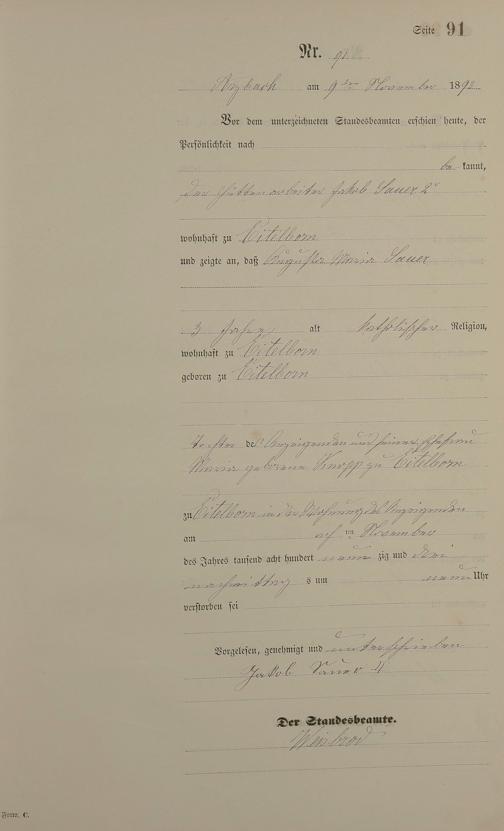 Seite 91
Nr. 91
Arzbach am 9ten November 1893
Vor dem unterzeichneten Standesbeamten erschien heute, der
Persönlichkeit nach
be kannt,
der Hüttenarbeiter Jakob Sauer 2r
wohnhaft zu Eitelborn
und zeigte an, daß Augusta Maria Sauer
3 Jahre alt katholischer Religion,
wohnhaft zu Eitelborn
geboren zu Eitelborn
Tochter des Anzeigenden und seiner Ehefrau
Maria geborene Knopp zu Eitelborn
zu Eitelborn in der Wohnung des Anzeigenden
am acht ten November
des Jahres tausend acht hundert neun zig und drei
nachmittag s um neun Uhr
verstorben sei
Vorgelesen, genehmigt und unterschrieben
Jakob Sauer
Der Standesbeamte.
Form. C.